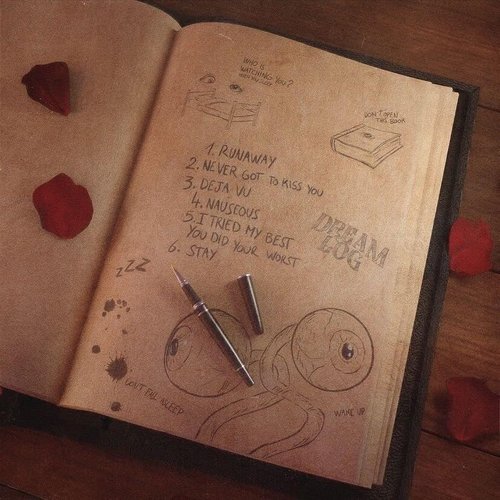 WHO IS
WATCHING YOU?
WHEN YOU SLEEP
DON'T OPEN
THIS BOOK
1. RUNAWAY
2. NEVER GOT TO KISS YOU
3. DEJA VU
4. NAUSEOUS
5. I TRIED MY BEST
YOU DID YOUR WORST
6. STAY
DREAM
LOG
ZZZ
DON'T FALL ASLEEP
WAKE UP